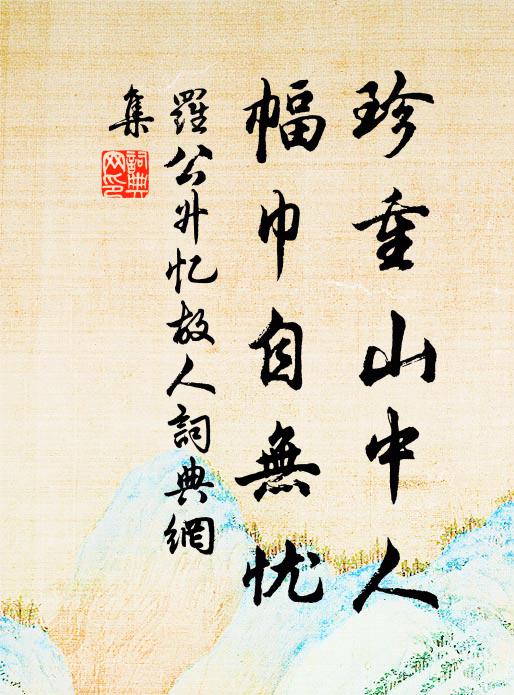 珍重山中人
幅巾自無忧
羅公升忆故人詞典網
集
詞典
网印